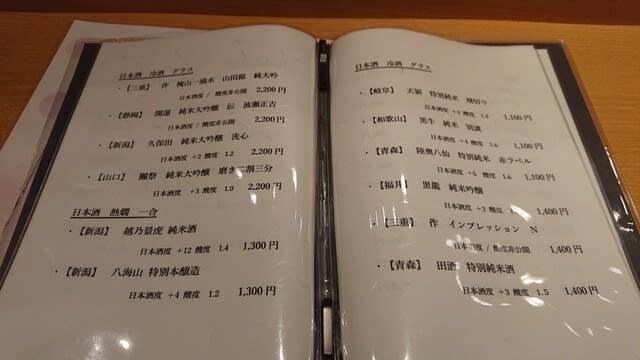 日本酒 冷酒 グラス
・【三重】 作 槐山一滴水 山田錦 純大吟
日本酒度 / 酸度非公開 2,200円
・【静岡】 開運 純米大吟醸 伝 波瀬正吉
日本酒度 / 酸度非公開 2,200円
・【新潟】 久保田 純米大吟醸 洗心
日本酒度 +2 酸度 1.2 2,200円
・【山口】 獺祭 純米大吟醸 磨き二割三分
日本酒度 +3 酸度 1.0 2,200円
日本酒 熱燗 一合
・【新潟】 越乃景虎 純米酒
日本酒度 +12 酸度 1.4 1,300円
・【新潟】 八海山 特別本醸造
日本酒度 +4 酸度 1.2 1,300円
日本酒 冷酒 グラス
・【岐阜】 天領 特別純米 飛切り
日本酒度 +4 酸度 1.4 1,100円
・【和歌山】 黒牛 純米
日本酒度 +4 酸度 1.6 1,100円
・【青森】 陸奥八仙 特別純米 赤ラベル
日本酒度 +0 酸度 1.6 1,100円
・【福井】 黒龍 純米吟醸
日本酒度 +3 酸度 1,400円
・【三重】 作 インプレッション N
日本酒度 / 酸度非公開 1,400円
・【青森】 田酒 特別純米酒
日本酒度 +3 酸度 1.5 1,400円